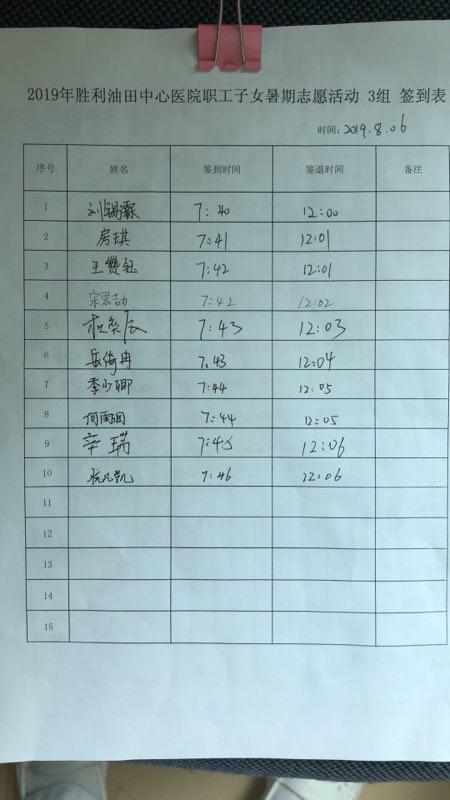 2019年胜利油田中心医院职工子女暑期志愿活动 3组 签到表
时间：2019.8.06
序号 姓名 签到时间 签退时间 备注
1 刘锡霖 7:40 12:00
2 房琪 7:41 12:01
3 王赞钰 7:42 12:01
4 宋思劼 7:42 12:02
5 7:43 12:03
6 岳倚冉 7.43 12:04
7 季少卿 7:44 12:05
8 何雨田 7:44 12:05
9 辛瑞 7:45 12:06
10 7:46 12:06
11
12
13
14
15